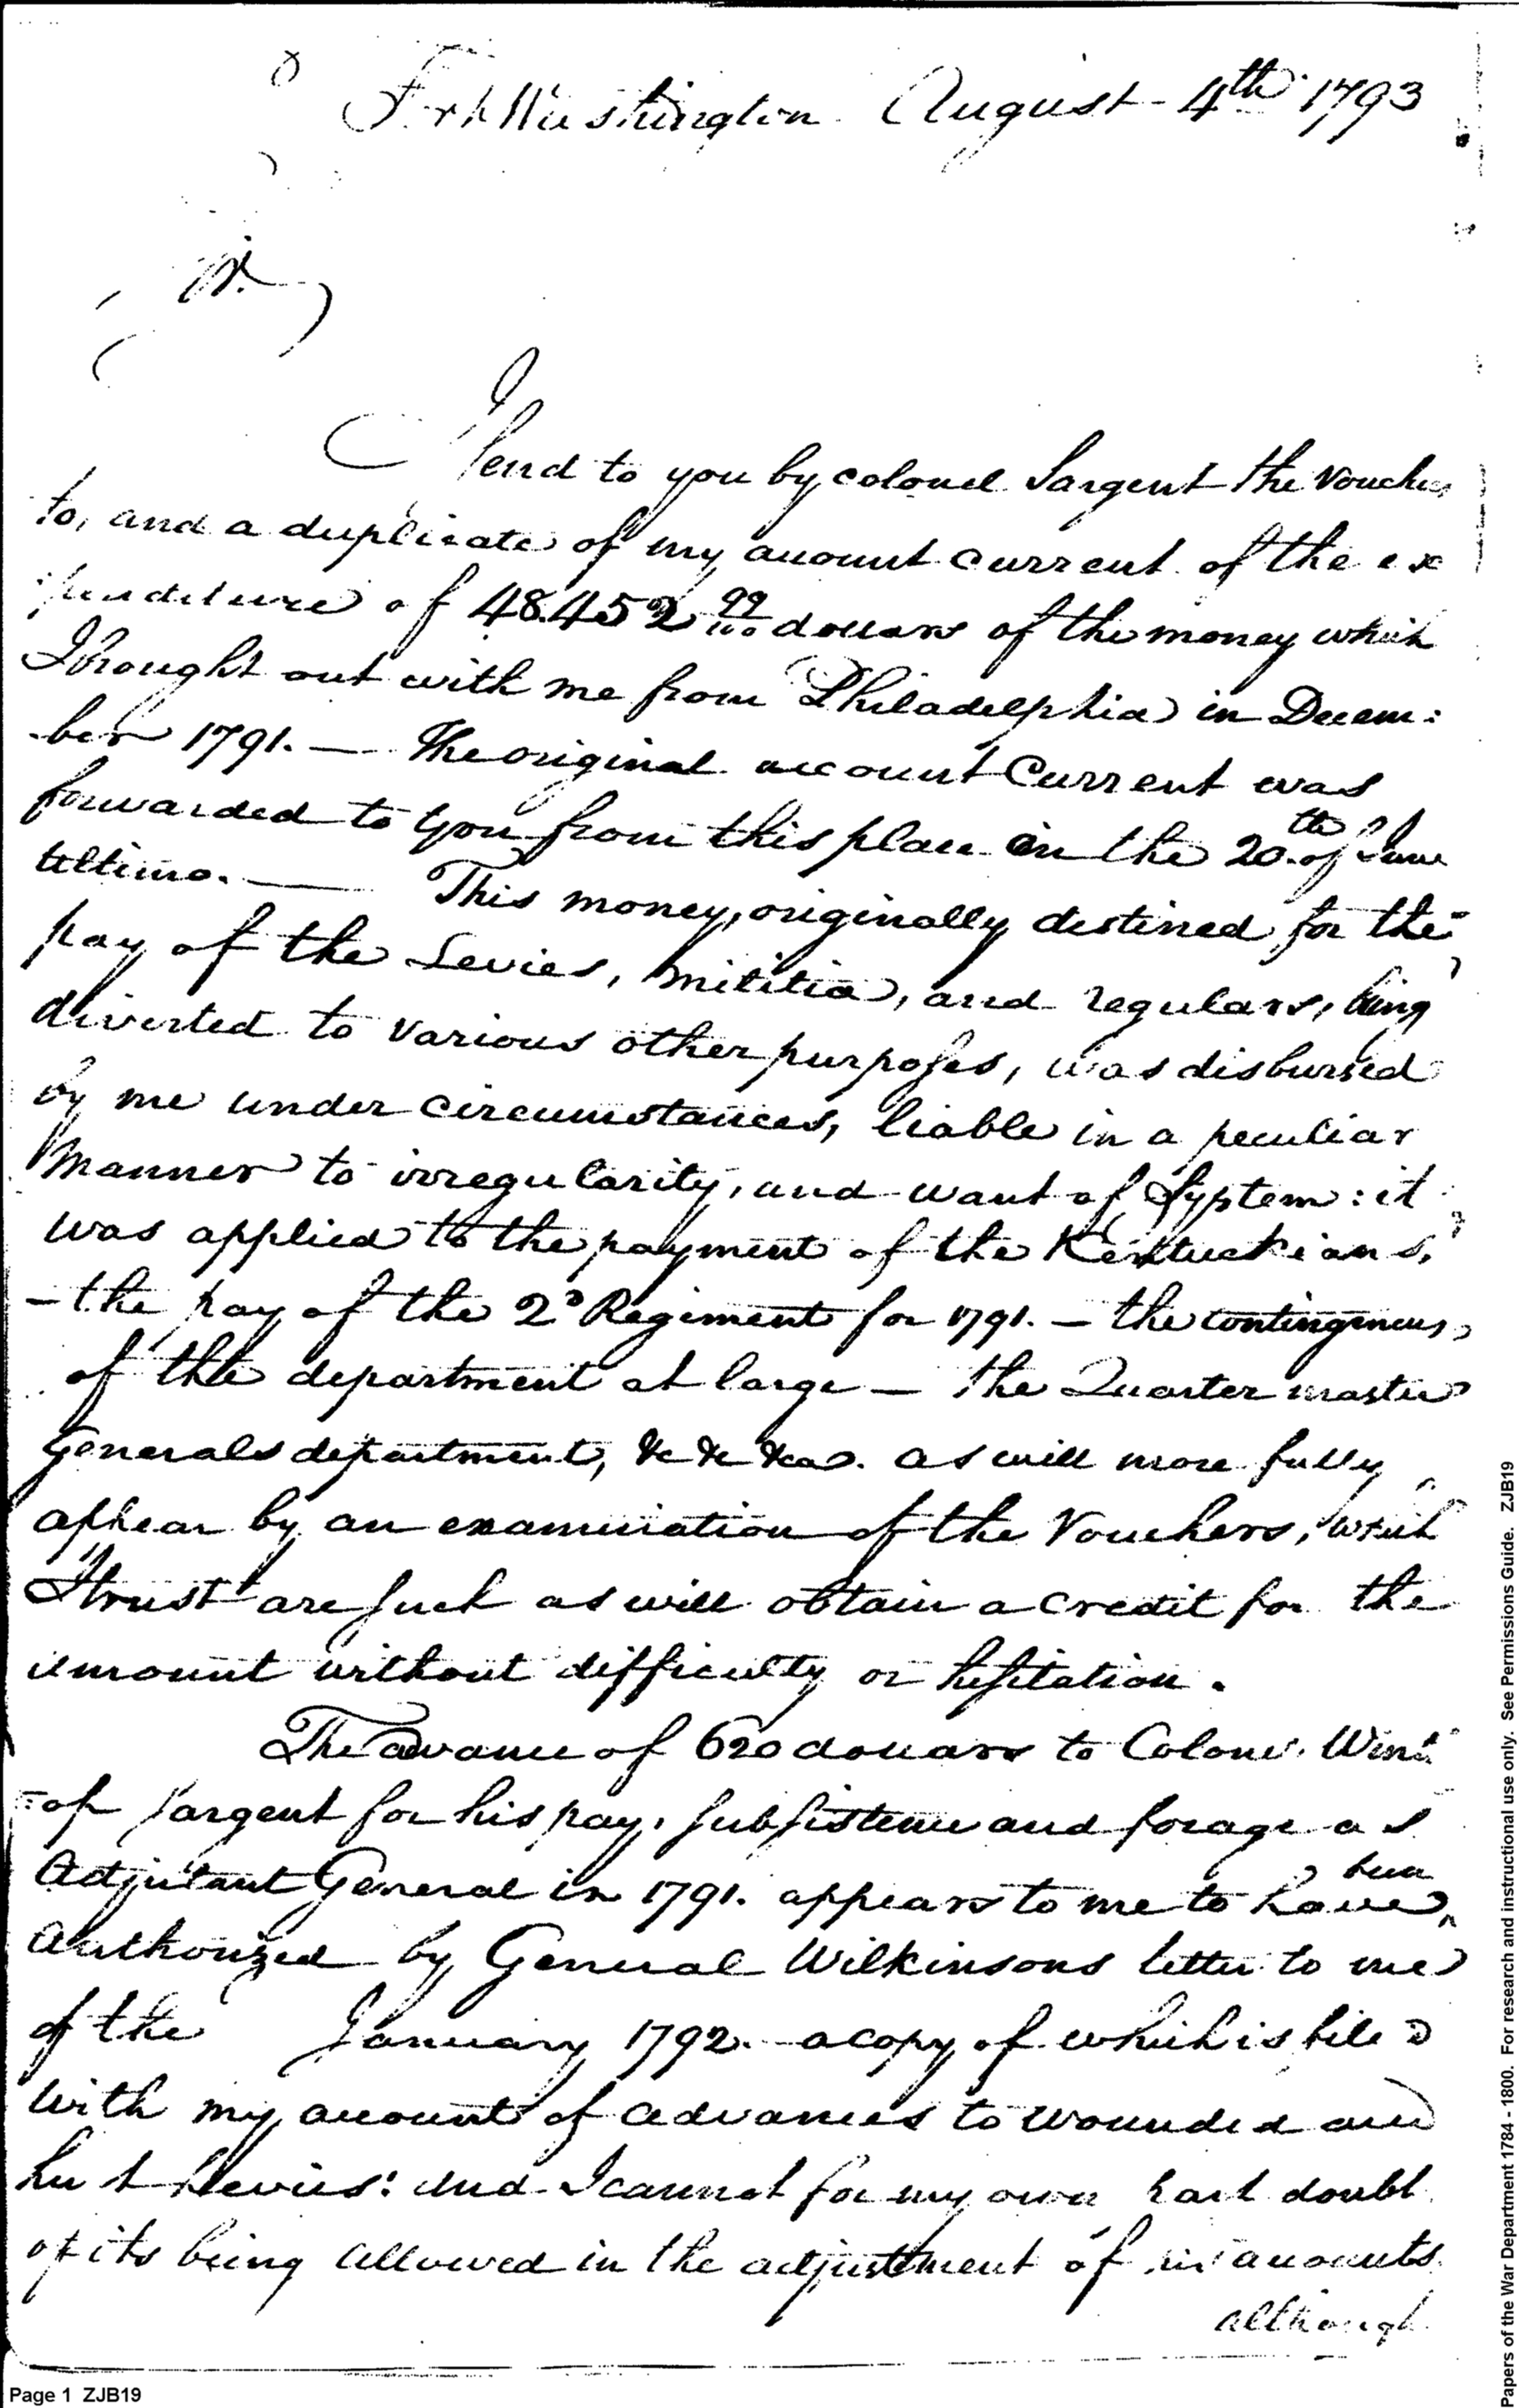 Fort Washington August 4th 1793
Sir.
I send to you by colonel Sargent the Vouchers
to, and a duplicate of my account current of the ex
penditure of 48.452 99/100 dollars of the money which
I brought out with me from Philadelphia in Decem:
ber 1791. — The original account Current was
forwarded to you from this place on the 20.th of June
Ultimo. — This money, originally destined for the
pay of the Levies, Militia, and regulars, being
diverted to various other purposes, was disbursed
by me under circumstances, liable in a peculiar
Manner to irregularity, and want of System: it
was applied to the payment of the Kentuckians,
— the pay of the 2d Regiment for 1791. — the contingencies,
of the department at large — the Quarter master
Generals department, &c &c &ca. as will more fully
appear by an examination of the Vouchers, which
I trust are such as will obtain a credit for the
amount without difficulty or hesitation.
The advance of 620 dollars to Colonel. Win
=op Sargent for his pay, subsistence and forage as
Adjutant General in 1791. appears to me to have been
Authorized by General Wilkinsons letter to me
of the January 1792. a copy of which is filed
With my account of advances to wounded and
hurt Levies: and I cannot for my own part doubt
of its being allowed in the adjustment of his accounts
although
Page 1 ZJB19
Papers of the War Department 1784 - 1800. For research and instructional use only. See Permissions Guide. ZJB19